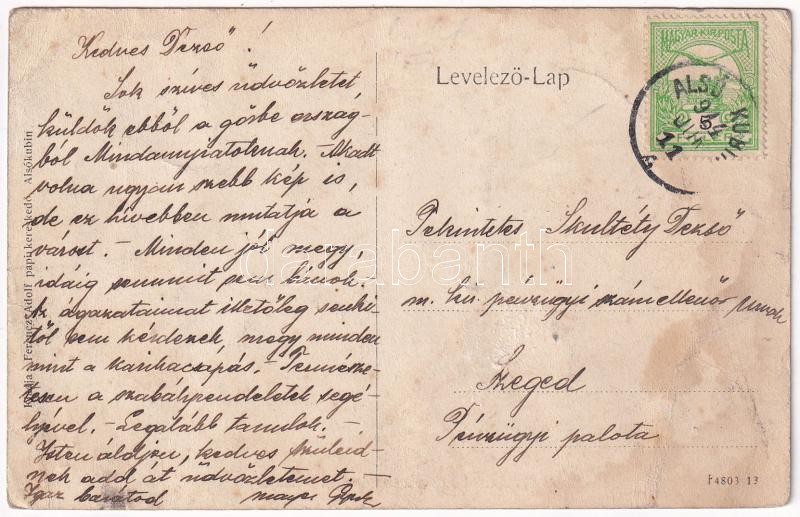 Kedves Dezső!
Sok szíves üdvözletet
küldök ebből a görbe ország-
ból Mindannyiatoknak. – Akadt
volna ugyan szebb kép is,
de ez hívebben mutatja a
várost. – Minden jól megy,
idáig semmit sem
Az ágazataimat illetőleg senki-
től sem kérdezek, megy minden
mint a karikacsapás. – Természe-
tesen a szabályrendeletek segé-
lyével. – Legalább tanulok. –
Isten áldjon, kedves Szüleid-
nek add át üdvözletemet. –
Igaz barátod
Kiadja: Ferencz Adolf papírkereskedő, Alsókubin
Levelező-Lap
MAGYAR KIR. POSTA
ALSÓ KUBIN
Tekintetes Skultéty Dezső
m. kir. pénzügyi számellenőr Úrnak
Szeged
Pénzügyi palota
F4803 13
darabanth.com